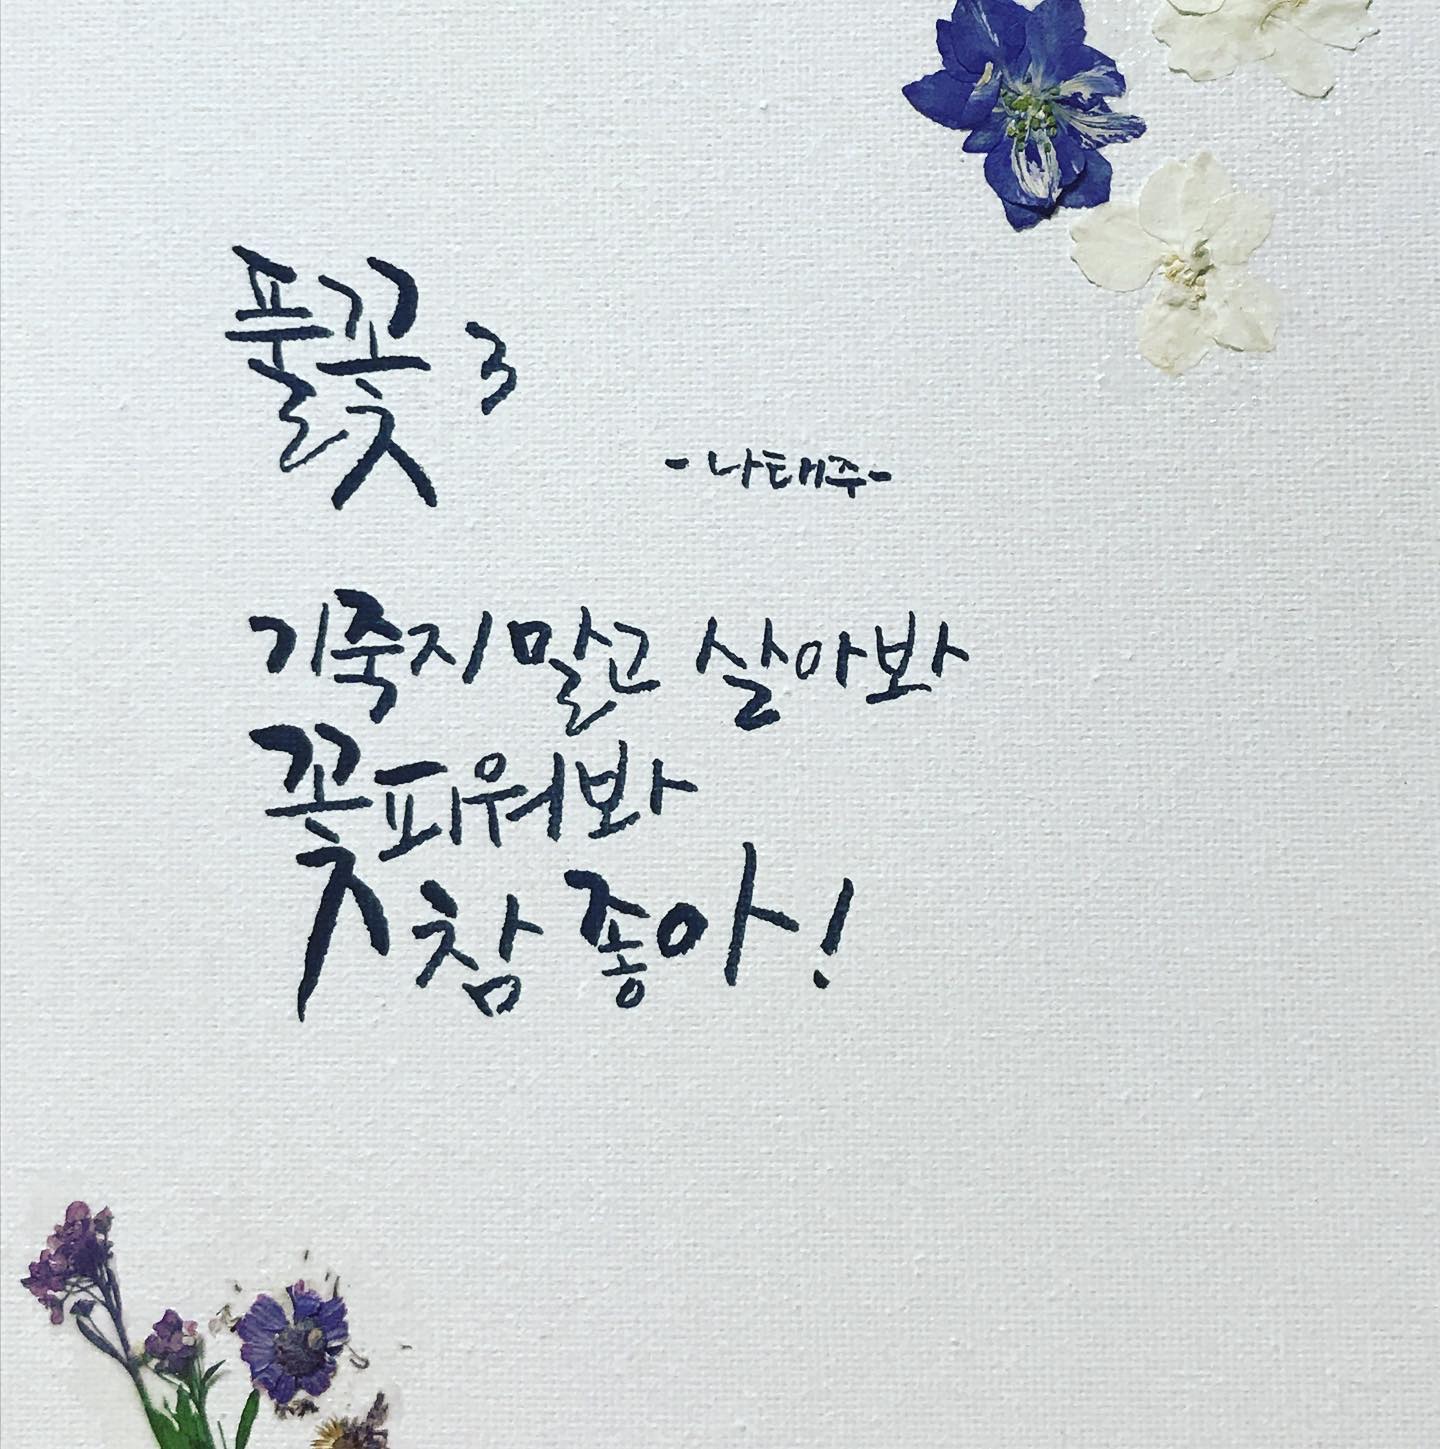 풀꽃 3
-나태주-
기죽지 말고 살아봐
꽃 피워봐
참 좋아!